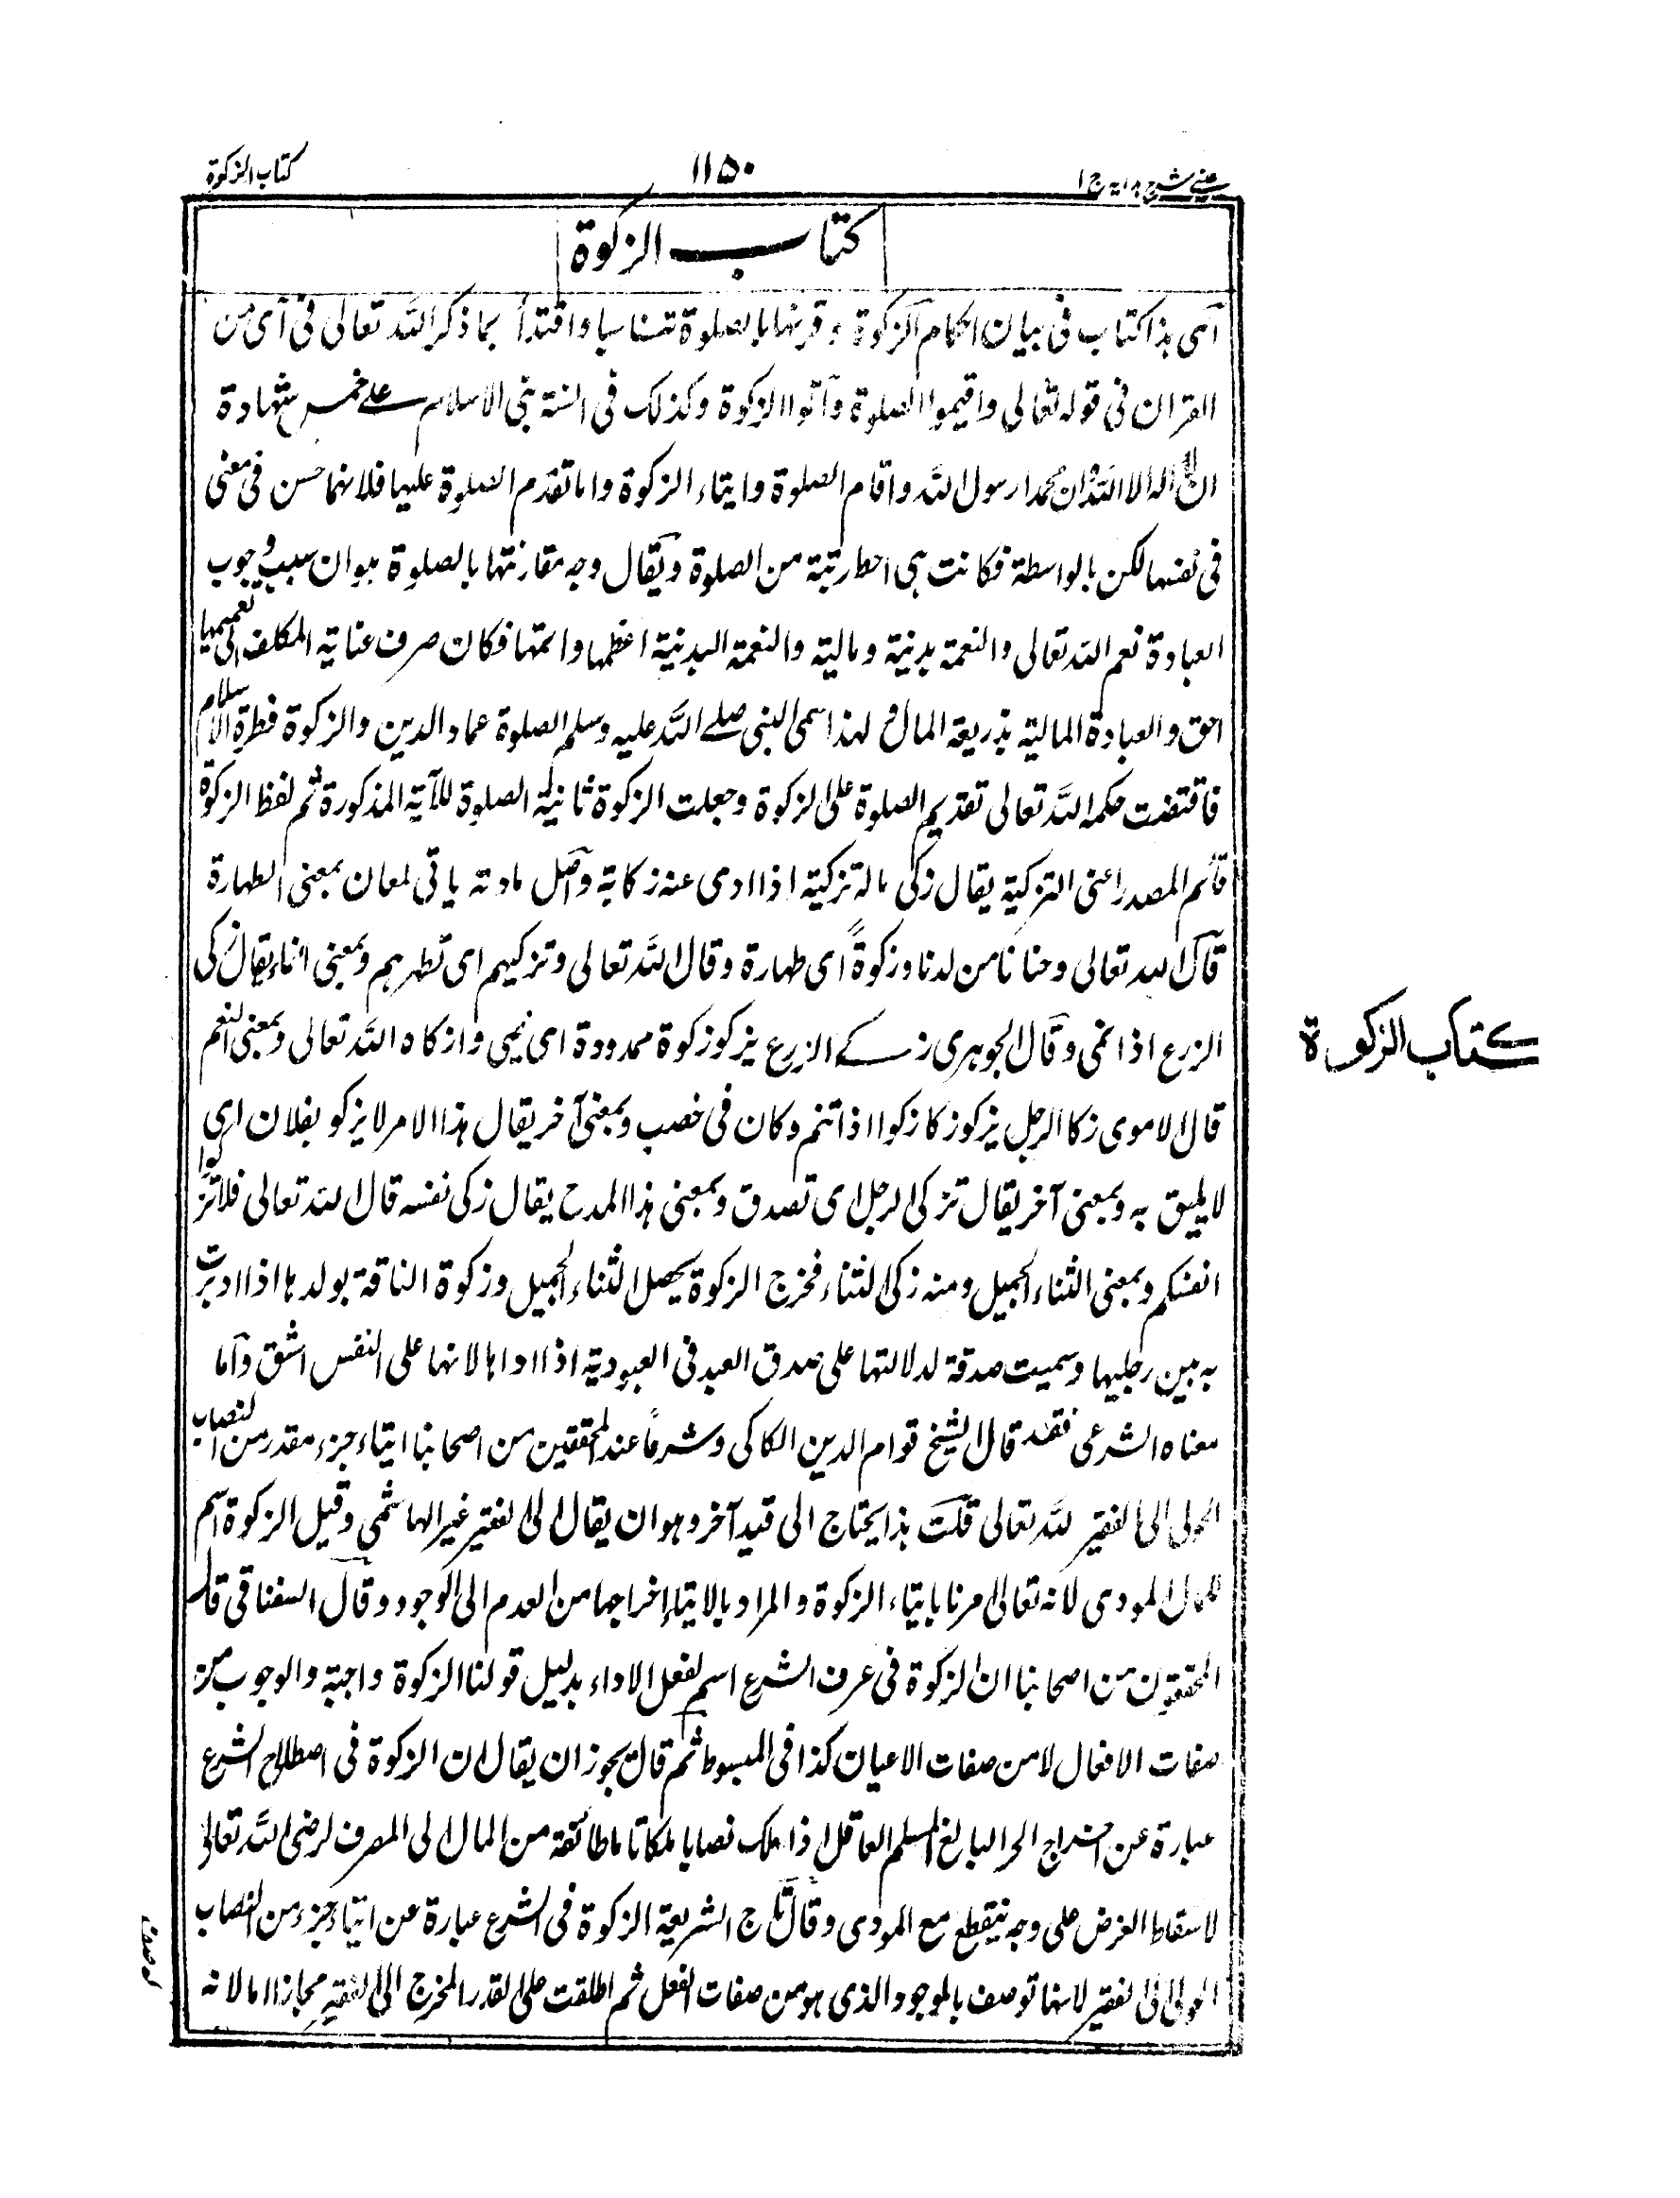 عینی شرح ہدایہ ج ۱
۱۱۵۰
کتاب الزکوة
کتاب الزکوة
ای ہذا کتاب فی بیان احکام الزکوة وقرنہا بالصلوة تناسبا واقتدأ بما ذکر اللہ تعالی فی آی من
القران فی قولہ تعالی واقیموا الصلوة وآتوا الزکوة وکذلک فی السنة بنی الاسلام علے خمس شہادة
ان لا الہ الا اللہ وان محمدا رسول اللہ واقام الصلوة وایتاء الزکوة واما تقدم الصلوة علیہا فلانہا حسن فی معنی
فی نفسہا لکن بالواسطة فکانت ہی احط رتبة من الصلوة ویقال وجہ مقارنتہا بالصلوة ہو ان سبب وجوب
العبادة نعم اللہ تعالی والنعمة بدنیة ومالیة والنعمة البدنیة اعظمہا واتمہا فکان صرف عنایة المکلف الی تعمیمہا
احق والعبادة المالیة بذریعة المال و لہذا سمی النبی صلے اللہ علیہ وسلم الصلوة عماد الدین والزکوة فطرة الاسلام
فاقتضت حکمة اللہ تعالی تقدیم الصلوة علی الزکوة وجعلت الزکوة ثانیة الصلوة للآیة المذکورة ثم لفظ الزکوة
قائم المصدر اعنی التزکیة یقال زکی مالہ تزکیة اذا ادی عنہ زکاتہ واصل مادتہ یاتی لمعان بمعنی الطہارة
قال اللہ تعالی وحنانا من لدنا وزکوةً ای طہارة وقال اللہ تعالی وتزکیہم ای تطہرہم وبمعنی النماء یقال زکی
الزرع اذا نمی وقال الجوہری زکے الزرع یزکو زکوة ممدودة ای نمی وازکاہ اللہ تعالی وبمعنی التنعم
قال الاموی زکا الرجل یزکو زکا زکوا اذا تنعم وکان فی خصب وبمعنی آخر یقال ہذا الامر لا یزکو بفلان ای
لا یلیق بہ وبمعنی آخر یقال تزکی الرجل ای تصدق وبمعنی ہذا المدح یقال زکی نفسہ قال اللہ تعالی فلا تزکوا
انفسکم وبمعنی الثناء الجمیل ومنہ زکی الثناء فمخرج الزکوة یحصل الثناء الجمیل وزکوة الناقة بولدہا اذا ادبرت
بہ بین رجلیہا وسمیت صدقة لدلالتہا علی صدق العبد فی العبودیة اذا اداہا لانہا علی النفس اشق واما
معناہ الشرعی فقد قال الشیخ قوام الدین الکاکی وشرعاً عند المحققین من اصحابنا ایتاء جزء مقدر من النصاب
الحولی الی الفقیر للہ تعالی قلت ہذا یحتاج الی قید آخر وہو ان یقال الی الفقیر غیر الہاشمی وقیل الزکوة اسم
للمال المودی لانہ تعالی امرنا بایتاء الزکوة والمراد بالایتاء اخراجہا من العدم الی الوجود وقال السفناقی قال
المحققون من اصحابنا ان الزکوة فی عرف الشرع اسم لفعل الاداء بدلیل قولنا الزکوة واجبة والوجوب من
صفات الافعال لا من صفات الاعیان کذا فی المبسوط ثم قال یجوز ان یقال ان الزکوة فی اصطلاح الشرع
عبارة عن اخراج الحر البالغ المسلم العاقل اذا ملک نصابا ملکا تاما طائفة من المال الی المصرف لرضی اللہ تعالی
لاسقاط الفرض علی وجہ ینقطع مع المودی وقال تاج الشریعة الزکوة فی الشرع عبارة عن ایتاء جزء من النصاب
الحولی الی الفقیر لانہا توصف بالوجود الذی ہو من صفات الفعل ثم اطلقت علی القدر المخرج الی الفقیر مجازا اما لانہ
کتاب الزکوة